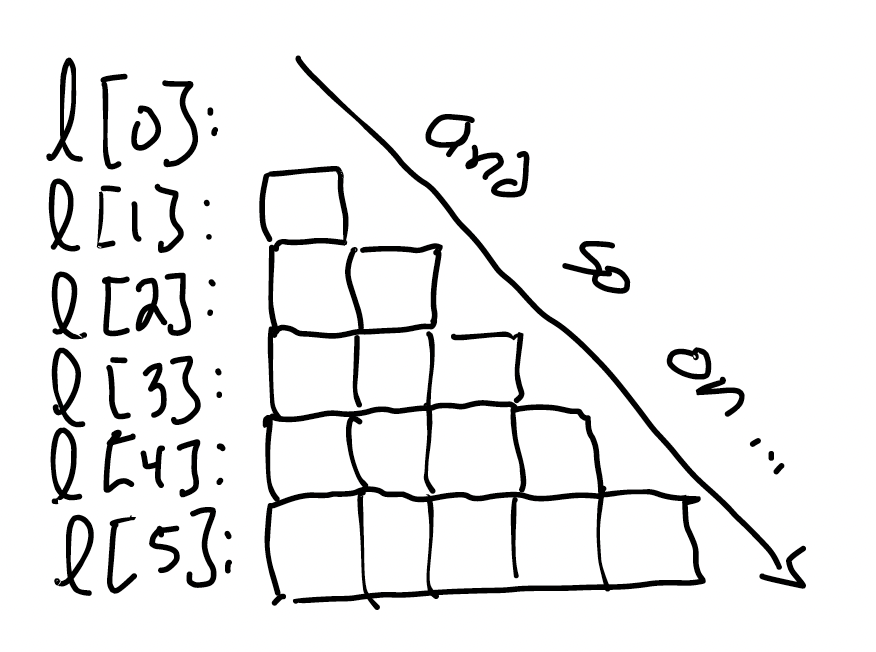 l[0]:
l[1]:
l[2]:
l[3]:
l[4]:
l[5]:
and so on...